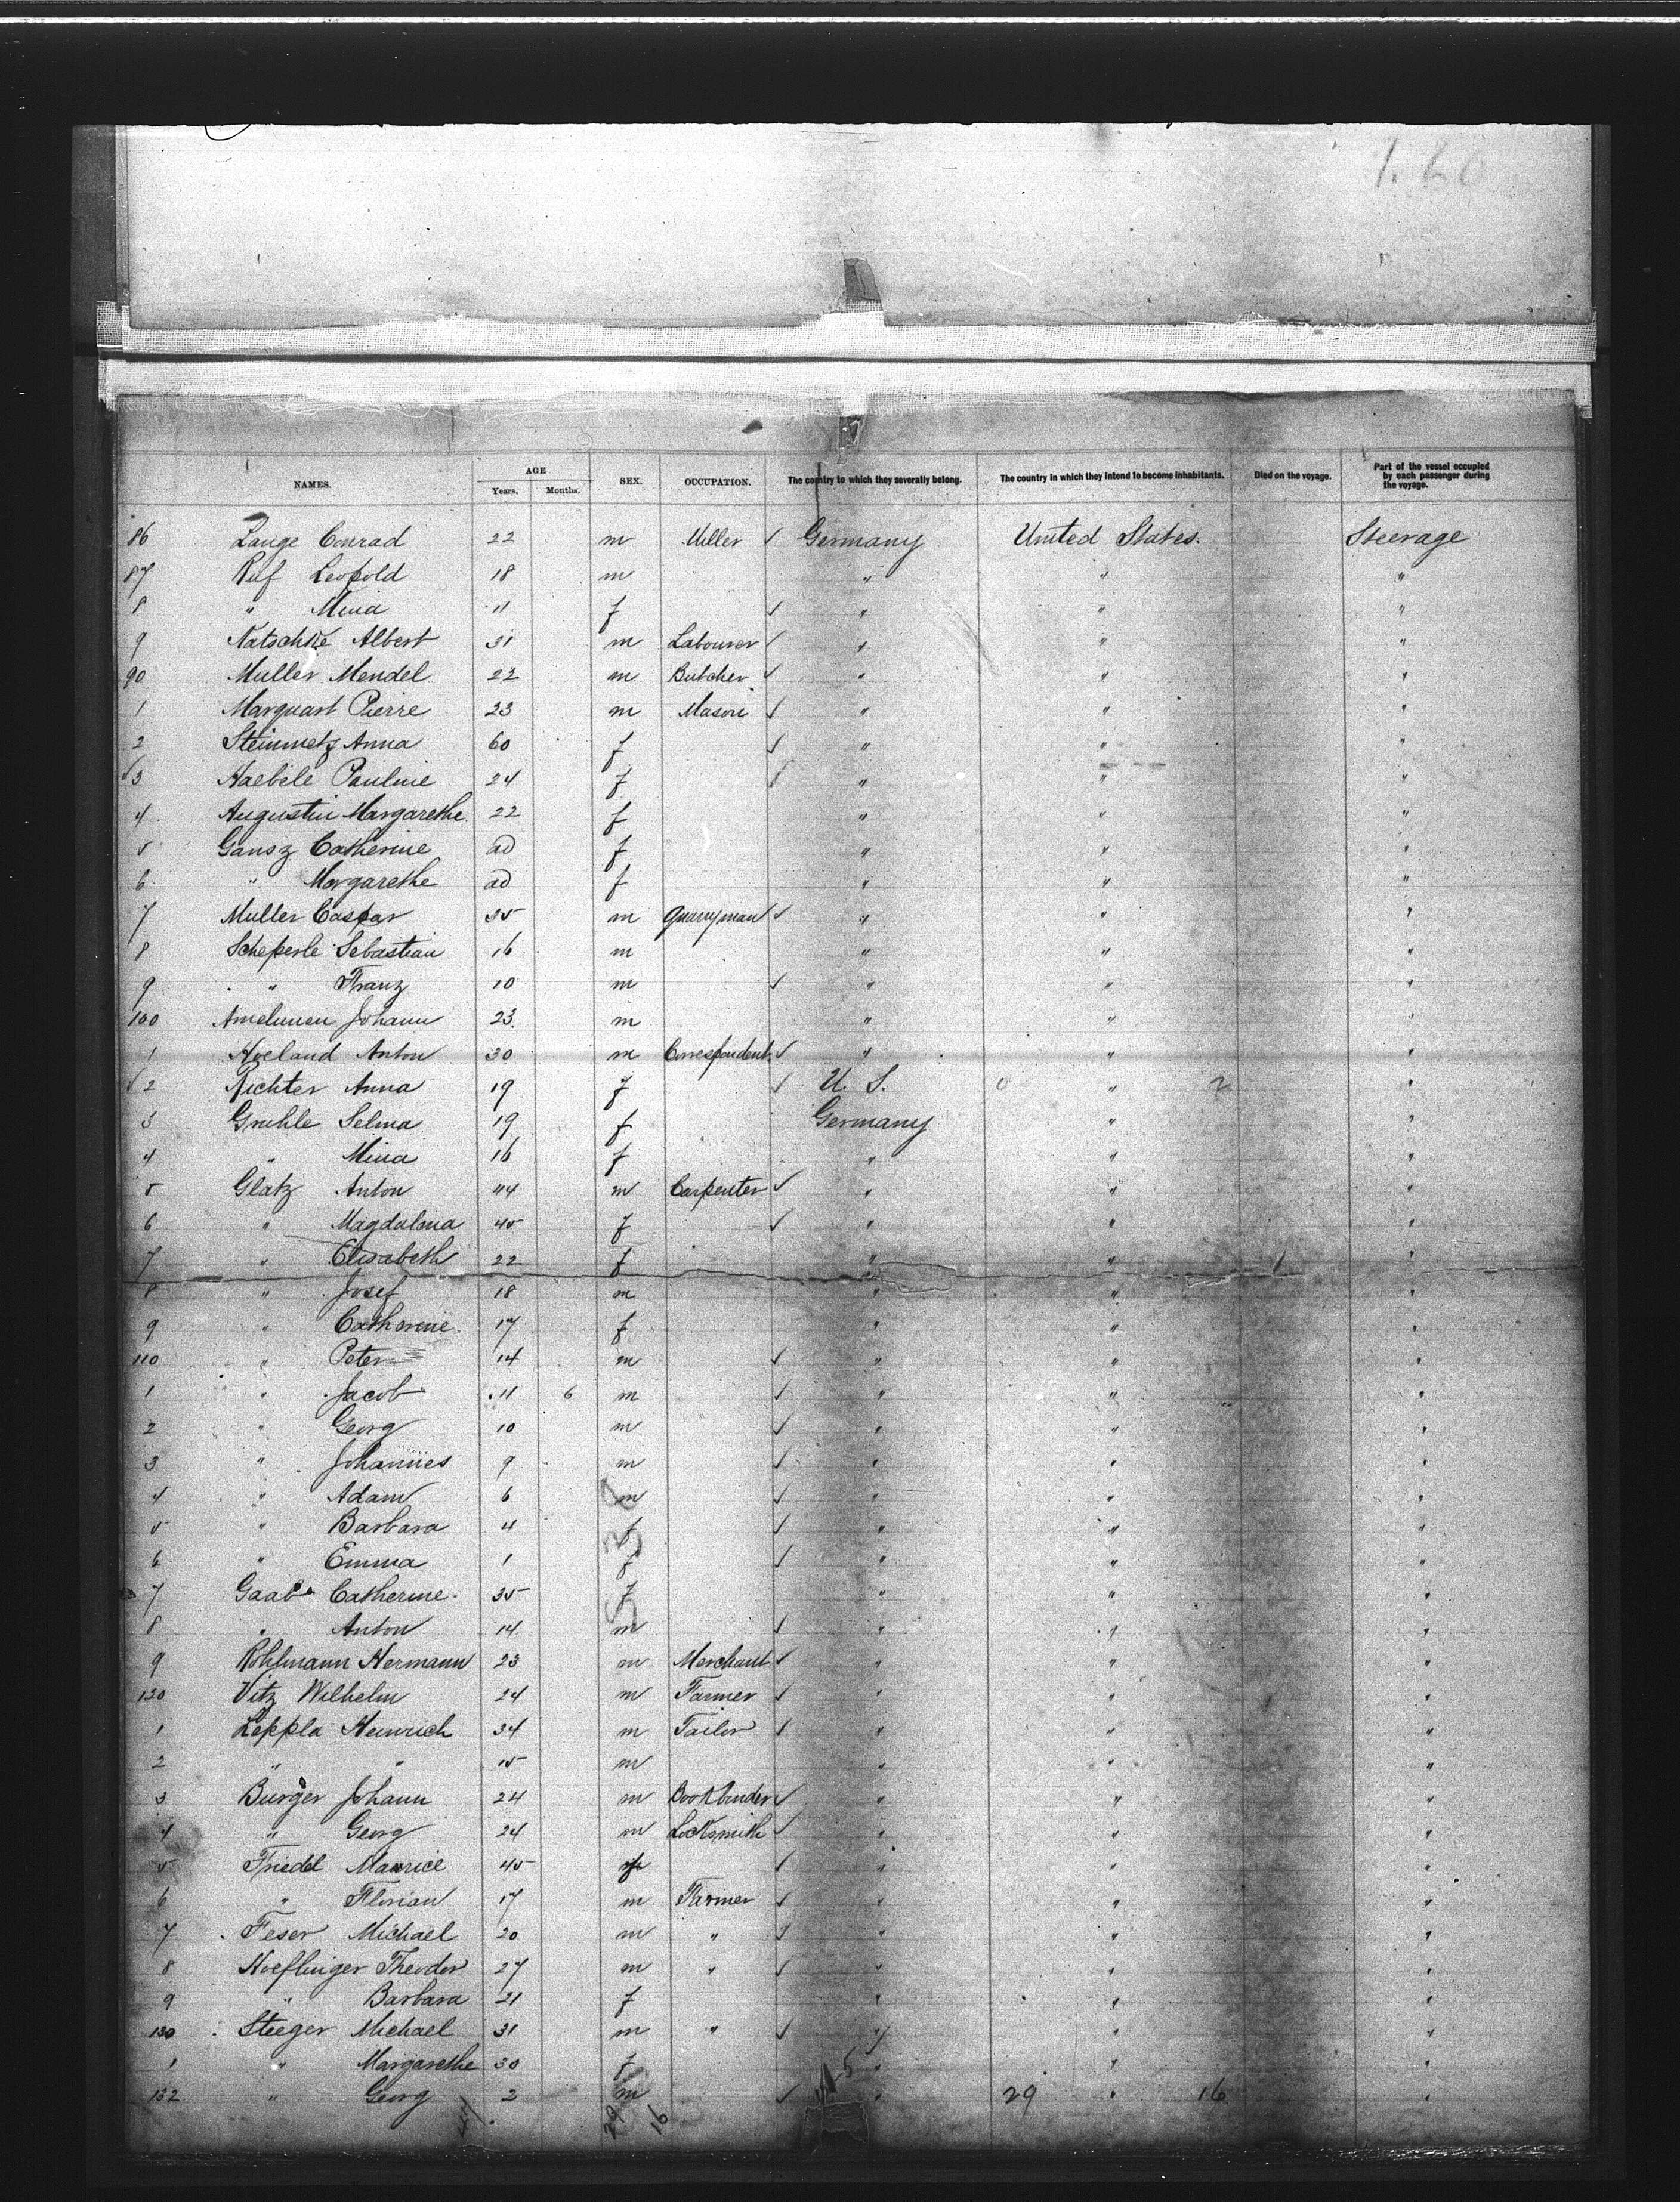 1.60
NAMES. AGE Years. Months. SEX. OCCUPATION. The country to which they severally belong. The country in which they intend to become inhabitants. Died on the voyage. Part of the vessel occupied by each passenger during the voyage.
86 Lange Conrad 22 m Miller ✓ Germany United States. Steerage
87 Ruf Leopold 18 m " " "
8 " Mina 11 f ✓ " " "
9 Natschke Albert 31 m Labourer ✓ " " "
90 Muller Mendel 22 m Butcher ✓ " " "
1 Marquart Pierre 23 m Mason ✓ " " "
2 Steinmetz Anna 60 f ✓ " " "
✓3 Haebele Pauline 24 f ✓ " " "
4 Augustin Margarethe 22 f " " "
5 Gansz Catherine ad f " " "
6 " Margarethe ad f " " "
7 Muller Caspar 35 m Quarryman ✓ " " "
8 Scheperle Sebastian 16 m " " "
9 " Franz 10 m ✓ " " "
100 Amelunen Johann 23 m " " "
1 Hoeland Anton 30 m Correspondent ✓ " " "
✓2 Richter Anna 19 f ✓ U. S. " 2 "
3 Gruhle Selma 19 f Germany " "
4 " Mina 16 f " " "
5 Glatz Anton 44 m Carpenter ✓ " " "
6 " Magdalena 45 f ✓ " " "
7 " Elisabeth 22 f " " "
8 " Josef 18 m " " "
9 " Catherine 17 f " " "
110 " Peter 14 m ✓ " " "
1 " Jacob 11 6 m ✓ " " "
2 " Georg 10 m ✓ " " "
3 " Johannes 9 m ✓ " " "
4 " Adam 6 m ✓ " " "
5 " Barbara 4 f ✓ " " "
6 " Emma 1 f ✓ " " "
7 Gaab Catherine 35 f " " "
8 " Anton 14 m ✓ " " "
9 Rohlmann Hermann 23 m Merchant ✓ " " "
120 Vitz Wilhelm 24 m Farmer ✓ " " "
1 Leppla Heinrich 34 m Tailor ✓ " " "
2 " " 15 m " " "
3 Burger Johann 24 m Bookbinder ✓ " " "
4 " Georg 24 m Locksmith ✓ " " "
5 Friedel Maurice 45 f ✓ " " "
6 " Florian 17 m Farmer ✓ " " "
7 Feser Michael 20 m " ✓ " " "
8 Hoeflinger Theodor 27 m " ✓ " " "
9 " Barbara 21 f " " "
130 Steeger Michael 31 m " ✓ " " "
1 " Margarethe 30 f " " "
132 " Georg 2 m ✓ " 29 " 16 "
29 16